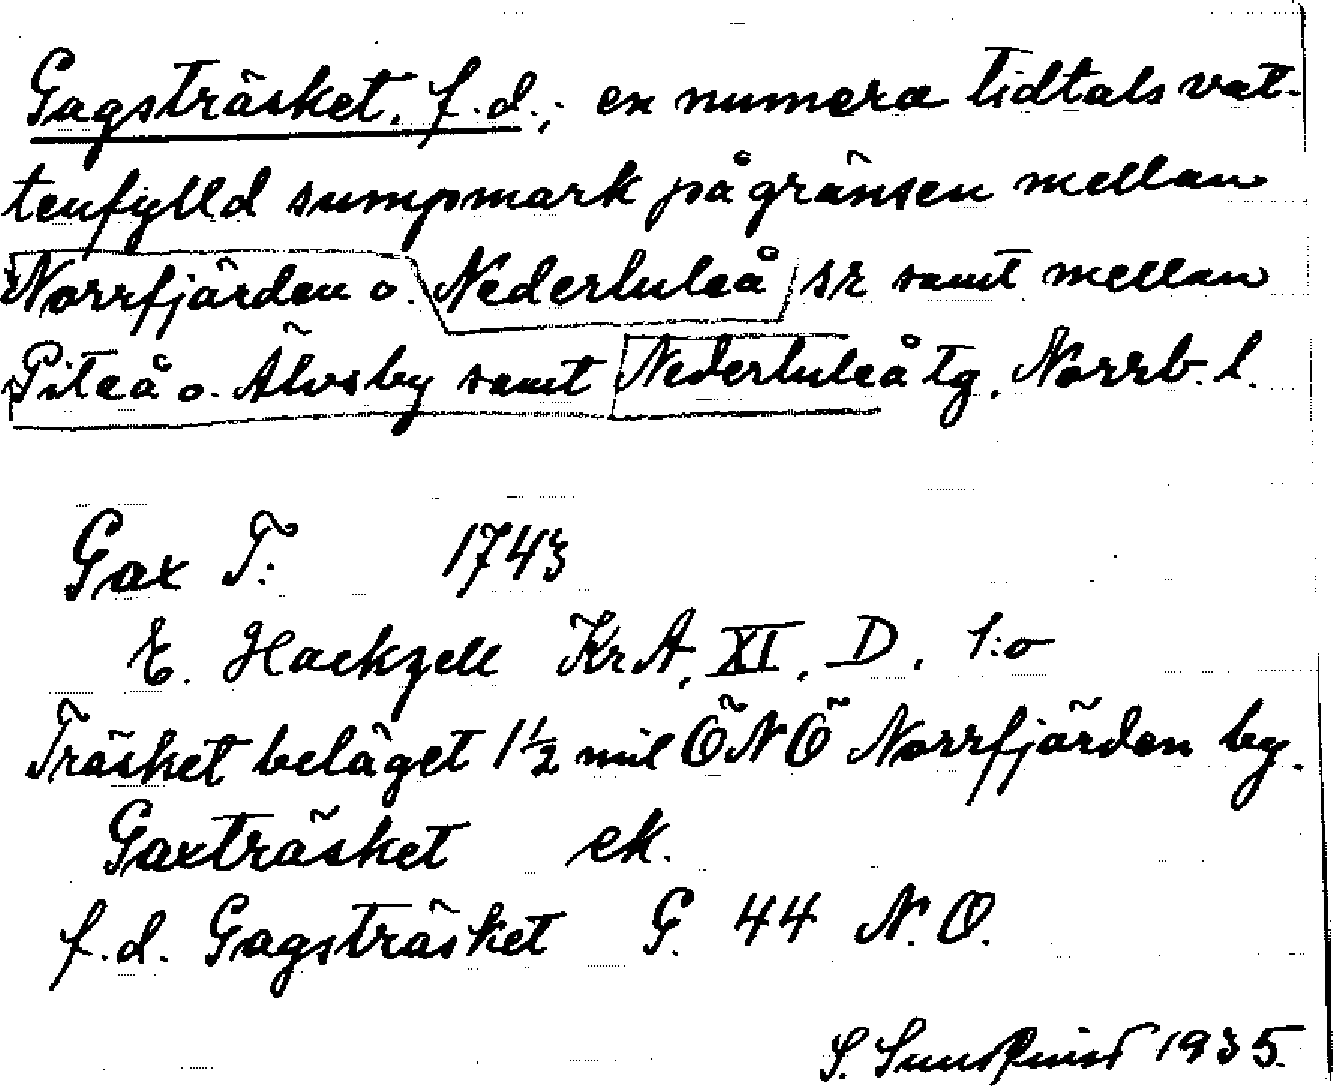 Gagsträsket, f.d.; en numera tidtals vat-
tenfylld sumpmark på gränsen mellan
Norrfjärden o. Nederluleå sr samt mellan
Piteå o. Älvsby samt Nederluleå tg. Norrb. l.
Gax T: 1743
E. Hackzell KrA, XI, D, 1:o
Träsket beläget 1½ mil ÖNÖ Norrfjärden by.
Gaxträsket ek.
f.d. Gagsträsket G. 44 N.O.
S. Sundqvist 1935.